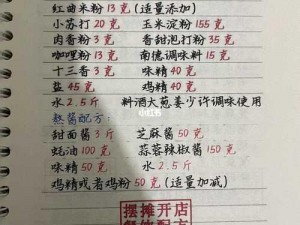 红曲米粉 13 克 (适量添加)
小苏打 20 克 玉米淀粉 155 克
肉香粉 3 克 香甜泡打粉 35 克
咖喱粉 13 克 南德调味料 15 克
十三香 3 克 味精 40 克
盐 45 克 鸡精 40 克
水 2.5 斤 料酒大葱姜少许调味使用
熬酱配方:
甜面酱 3 斤 芝麻酱 50 克
蚝油 100 克 蒜蓉辣椒酱 150 克
味精 50 克 水 2.5 斤
鸡精或者鸡粉 50 克 (适量加减)
摆摊开店